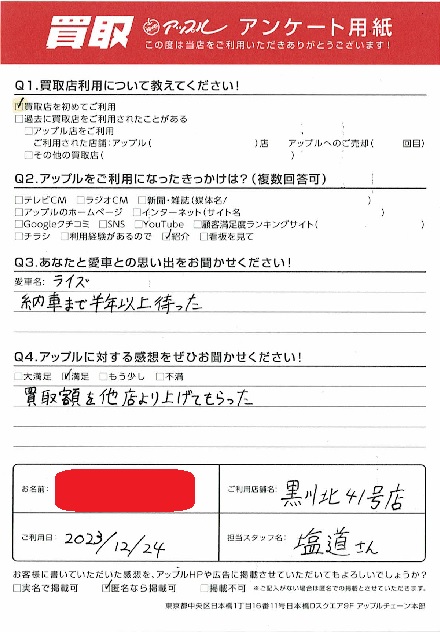 買取 アップル アンケート用紙
この度は当店をご利用いただきありがとうございます！
Q1.買取店利用について教えてください！
☑買取店を初めてご利用
□過去に買取店をご利用されたことがある
□アップル店をご利用
ご利用された店舗：アップル（ ）店 アップルへのご売却（ 回目）
□その他の買取店（ ）
Q2.アップルをご利用になったきっかけは？（複数回答可）
□テレビCM □ラジオCM □新聞・雑誌（媒体名/ ）
□アップルのホームページ □インターネット（サイト名 ）
□Googleクチコミ □SNS □YouTube □顧客満足度ランキングサイト（ ）
□チラシ □利用経験があるので ☑紹介 □看板を見て
Q3.あなたと愛車との思い出をお聞かせください！
愛車名：ライズ
納車まで半年以上待った
Q4.アップルに対する感想をぜひお聞かせください！
□大満足 ☑満足 □もう少し □不満
買取額を他店より上げてもらった
お名前：
ご利用店舗名：黒川北41号店
ご利用日：2023/12/24
担当スタッフ名：塩道さん
お客様に書いていただいた感想を、アップルHPや広告に掲載させていただいてもよろしいでしょうか？
□実名で掲載可 ☑匿名なら掲載可 □掲載不可 ※ご記入がない場合は匿名での掲載とさせていただきます。
東京都中央区日本橋1丁目16番11号日本橋Dスクエア9F アップルチェーン本部